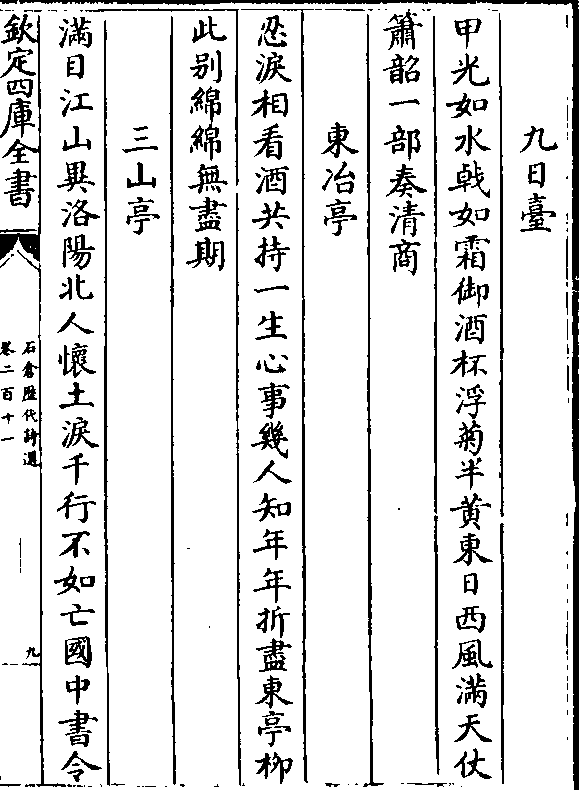 九日臺
甲光如水戟如霜御酒杯浮菊半黄東日西風滿天仗
簫韶一部奏清商
東冶亭
忍淚相看酒共持一生心事幾人知年年折盡東亭柳
此别綿綿無盡期
三山亭
滿目江山異洛陽北人懷土淚千行不如亡國中書令
欽定四庫全書
石倉歷代詩選
卷二百十一
九